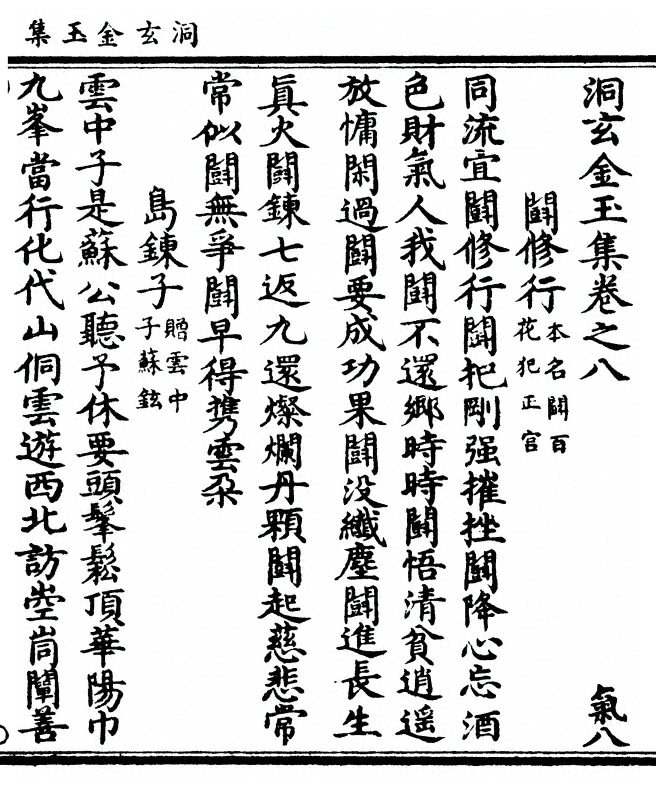 洞玄金玉集
洞玄金玉集卷之八 氣八
鬪修行 本名鬪百
花犯正宮
同流宜鬪修行鬪把剛强摧挫鬪降心忘酒
色財氣人我鬪不還鄉時時鬪悟清貧逍遥
放慵閑過鬪要成功果鬪没纖塵鬪進長生
真火鬪鍊七返九還燦爛丹顆鬪起慈悲常
常似鬪無爭鬪早得携雲朵
島鍊子 贈雲中
子蘇鉉
雲中子是蘇公聽予休要頭髼鬆頂華陽巾
九峯當行化代山侗雲遊西北訪崆峒闡善